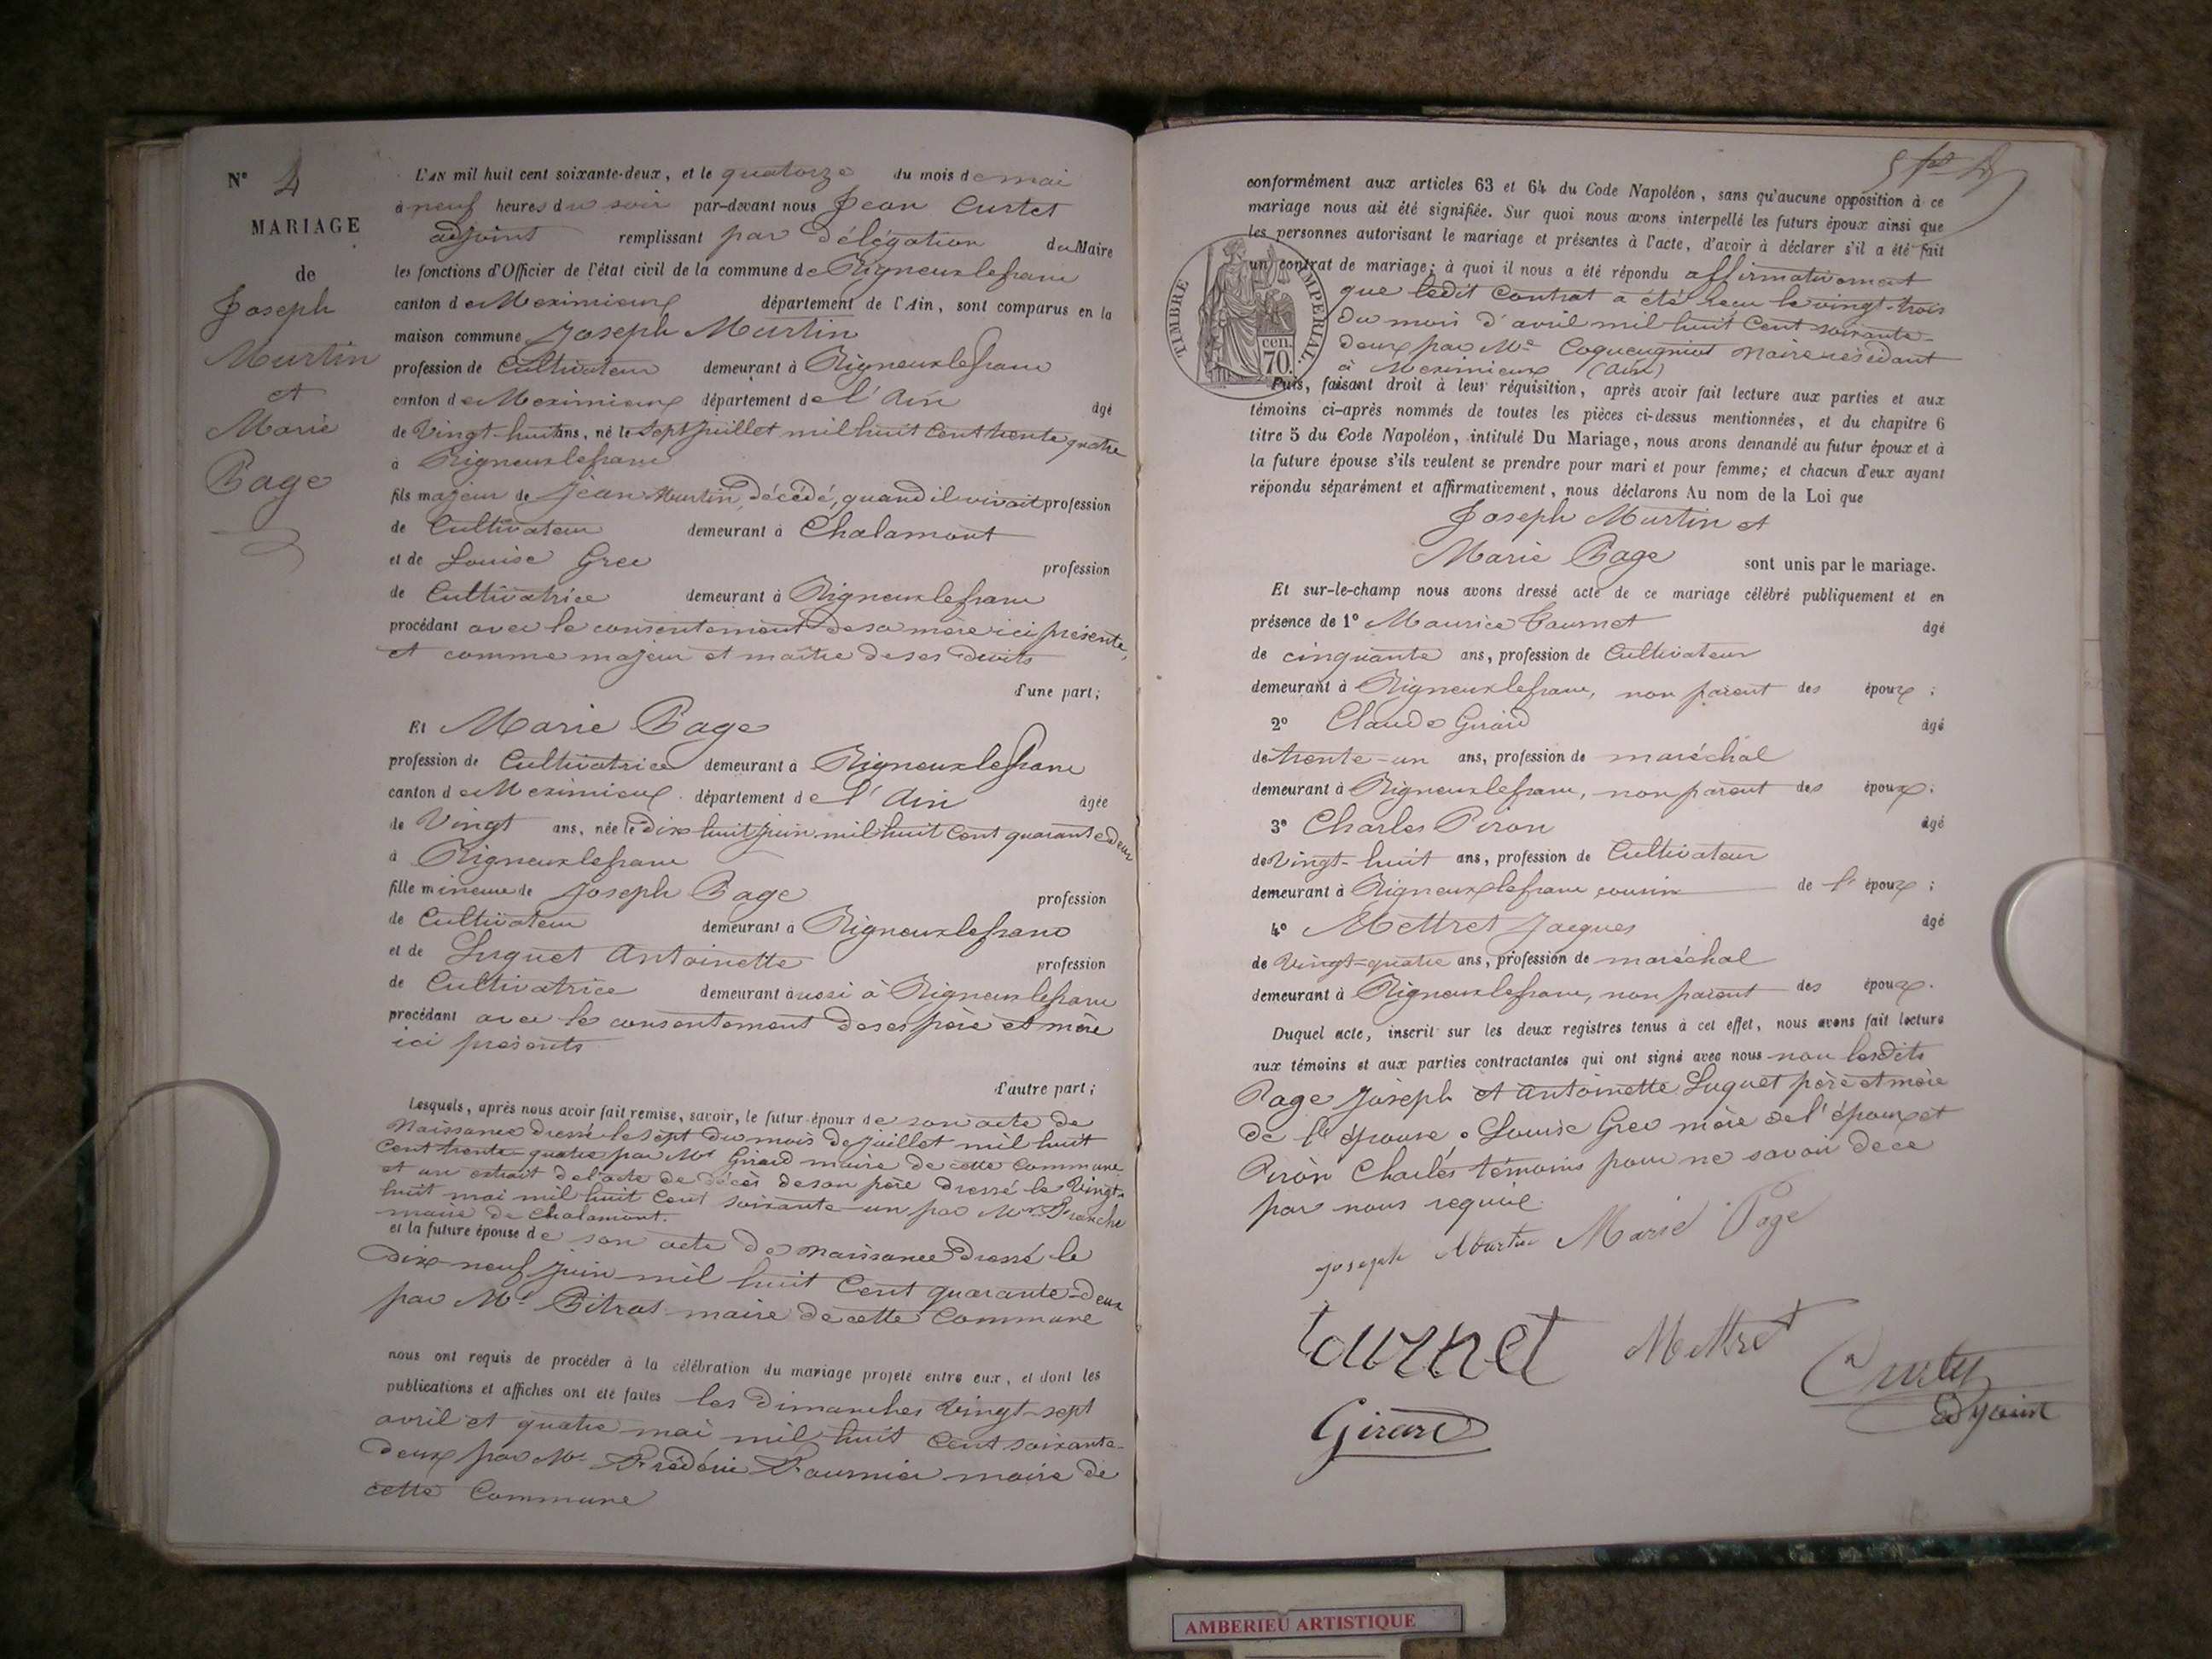 N° 4
MARIAGE
de
Joseph
Martin
et
Marie
Page
L'AN mil huit cent soixante-deux, et le quatorze du mois de mai
à neuf heures du soir par-devant nous Jean Curtet
adjoint remplissant par délégation du Maire
les fonctions d'Officier de l'état civil de la commune de Rigneuxlefranc
canton de Meximieux département de l'Ain, sont comparus en la
maison commune Joseph Martin
profession de Cultivateur demeurant à Rigneuxlefranc
canton de Meximieux département de l'Ain âgé
de Vingt-huit ans, né le Sept Juillet mil huit Cent trente quatre
à Rigneuxlefranc
fils majeur de Jean Martin, décédé, quand il vivait profession
de Cultivateur demeurant à Chalamont
et de Louise Grec profession
de Cultivatrice demeurant à Rigneuxlefranc
procédant avec le consentement de sa mère ici présente,
et comme majeur et maître de ses Droits
d'une part;
Et Marie Page
profession de Cultivatrice demeurant à Rigneuxlefranc
canton de Meximieux département de l'Ain âgée
de Vingt ans, née le Dix huit Juin mil huit Cent quarante deux
à Rigneuxlefranc
fille mineure de Joseph Page profession
de Cultivateur demeurant à Rigneuxlefranc
et de Luguet Antoinette profession
de Cultivatrice demeurant aussi à Rigneuxlefranc
procédant avec le consentement de ses père et mère
ici présents
d'autre part;
Lesquels, après nous avoir fait remise, savoir, le futur époux de son acte de
Naissance dressé le sept du mois de Juillet mil huit
Cent trente-quatre par Mr Girard maire de cette Commune
et un extrait de l'acte de décès de son père dressé le Vingt-
huit mai mil huit Cent soixante-un par Mr
maire de Chalamont.
et la future épouse de son acte de Naissance dressé le
Dix-neuf Juin mil huit Cent quarante-deux
par Mr Pitrat maire de cette Commune
nous ont requis de procéder à la célébration du mariage projeté entre eux, et dont les
publications et affiches ont été faites les Dimanches Vingt-sept
avril et quatre mai mil huit Cent soixante-
Deux par Mr Frédéric Fournier maire de
cette Commune
conformément aux articles 63 et 64 du Code Napoléon, sans qu'aucune opposition à ce
mariage nous ait été signifiée. Sur quoi nous avons interpellé les futurs époux ainsi que
les personnes autorisant le mariage et présentes à l'acte, d'avoir à déclarer s'il a été fait
un contrat de mariage; à quoi il nous a été répondu affirmativement
que ledit Contrat a été reçu le vingt-trois
du mois d'avril mil huit Cent soixante-
deux par Me Coqueugniot Notaire résidant
à Meximieux (Ain)
TIMBRE IMPERIAL.
70 cen.
Puis, faisant droit à leur réquisition, après avoir fait lecture aux parties et aux
témoins ci-après nommés de toutes les pièces ci-dessus mentionnées, et du chapitre 6
titre 5 du Code Napoléon, intitulé Du Mariage, nous avons demandé au futur époux et à
la future épouse s'ils veulent se prendre pour mari et pour femme; et chacun d'eux ayant
répondu séparément et affirmativement, nous déclarons Au nom de la Loi que
Joseph Martin et
Marie Page sont unis par le mariage.
Et sur-le-champ nous avons dressé acte de ce mariage célébré publiquement et en
présence de 1° Maurice Tournet âgé
de cinquante ans, profession de Cultivateur
demeurant à Rigneuxlefranc, non parent des époux;
2° Claude Girard âgé
de trente-un ans, profession de maréchal
demeurant à Rigneuxlefranc, non parent des époux;
3° Charles Piron âgé
de Vingt-huit ans, profession de Cultivateur
demeurant à Rigneuxlefranc cousin de l' époux;
4° Mettret Jacques âgé
de Vingt-quatre ans, profession de maréchal
demeurant à Rigneuxlefranc, non parent des époux.
Duquel acte, inscrit sur les deux registres tenus à cet effet, nous avons fait lecture
aux témoins et aux parties contractantes qui ont signé avec nous non lesdits
Page Joseph et Antoinette Luguet père et mère
de l'épouse. Louise Grec mère de l'époux et
Piron Charles témoins pour ne savoir de ce
par nous requis.
Joseph Martin Marie Page
tournet Mettret
Curtet
adjoint
Girard
AMBERIEU ARTISTIQUE